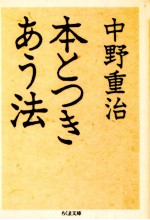 中野重治
本とつき
あう法
ちくま文庫